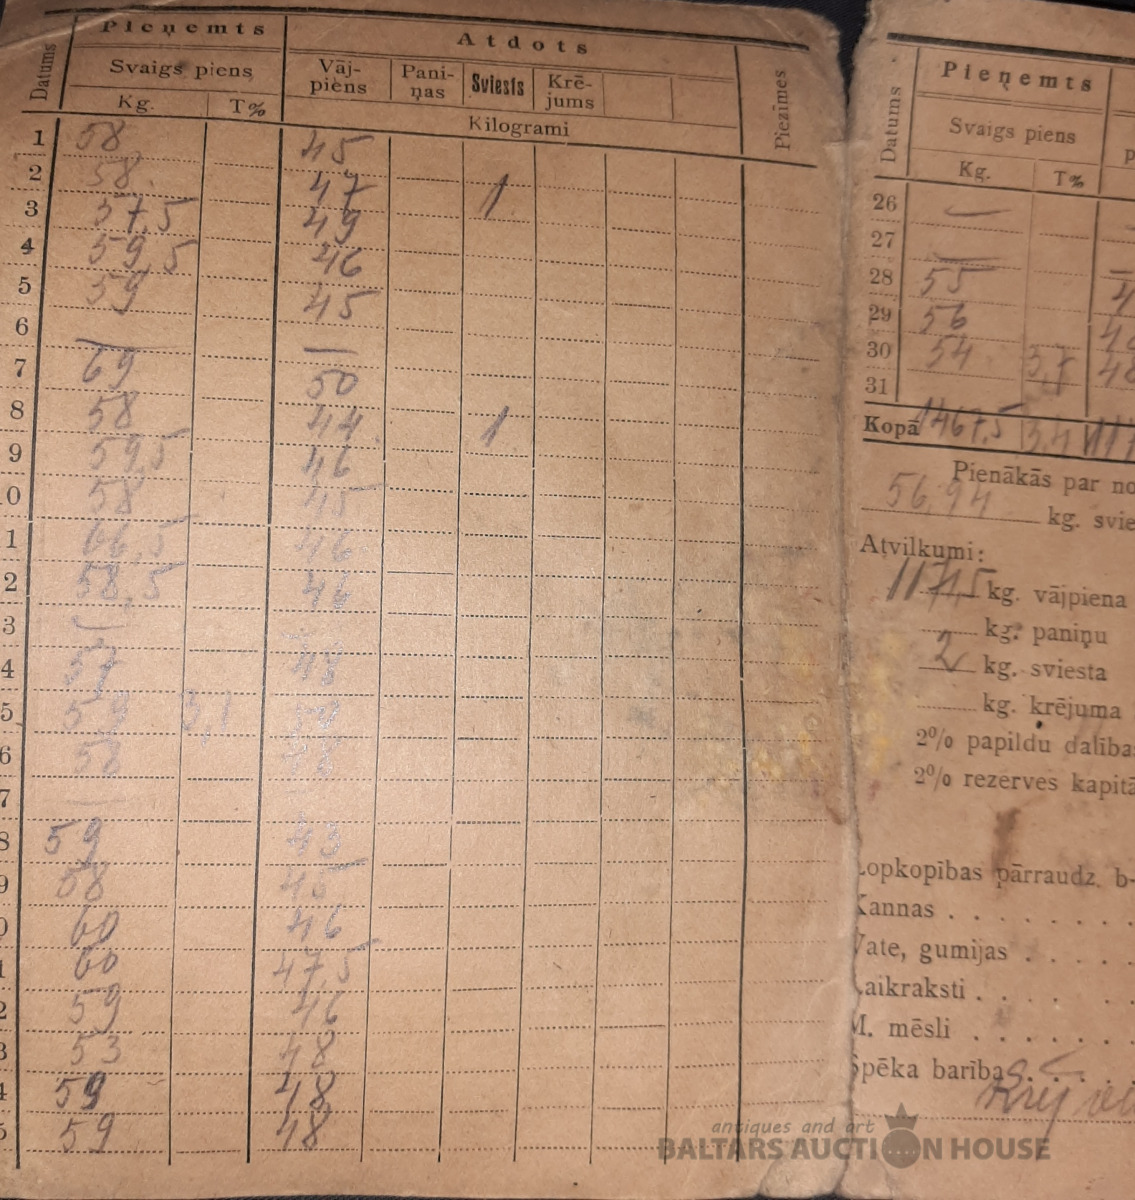 Pieņemts
Atdots
Datums
Svaigs piens
Vāj-
piens
Pani-
ņas
Sviests
Krē-
jums
Piezīmes
Kg. T%
Kilogrami
1 58 45
2 58 47 1
3 57,5 49
4 59,5 46
5 59 45
6 — —
7 69 50
8 58 44 1
9 59,5 46
0 58 45
1 66,5 46
2 58,5 44
3 —
4 57 48
5 58 3,1
6 58
7 —
8 59 43
9 58 45
0 60 46
1 60 47,5
2 59 46
3 53 48
4 59 48
5 59 48
Pieņemts
Datums
Svaigs piens
Kg. T%
26 —
27 —
28 55
29 56
30 54 3,7 48
31
Kopā 1467,5 3,4
Pienākās par no
56,94 kg. svie
Atvilkumi:
1175 kg. vājpiena
kg. paniņu
2 kg. sviesta
kg. krējuma
2% papildu dalība
2% rezerves kapitā
Lopkopības pārraudz. b-
Kannas . . . . . .
Vate, gumijas . . . .
Laikraksti . . . . . .
M. mēsli . . . . . . .
Spēka barības . . . .
antiques and art
BALTARS AUCTION HOUSE